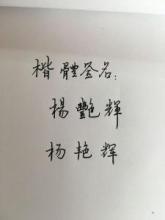 楷體签名:
楊艷輝
杨艳辉